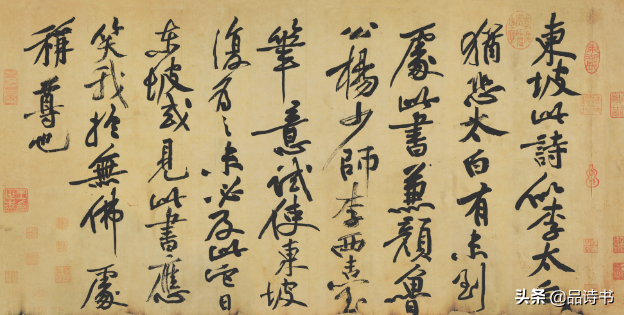 東坡此詩似李太白
猶恐太白有未到
處此書兼顏魯
公楊少師李西臺
筆意試使東坡
復為之未必及此它日
東坡或見此書應
笑我於無佛處
稱尊也
头条 @品诗书